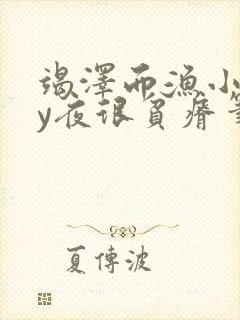 竭澤而漁小
y夜很負瘠筆
夏傳波